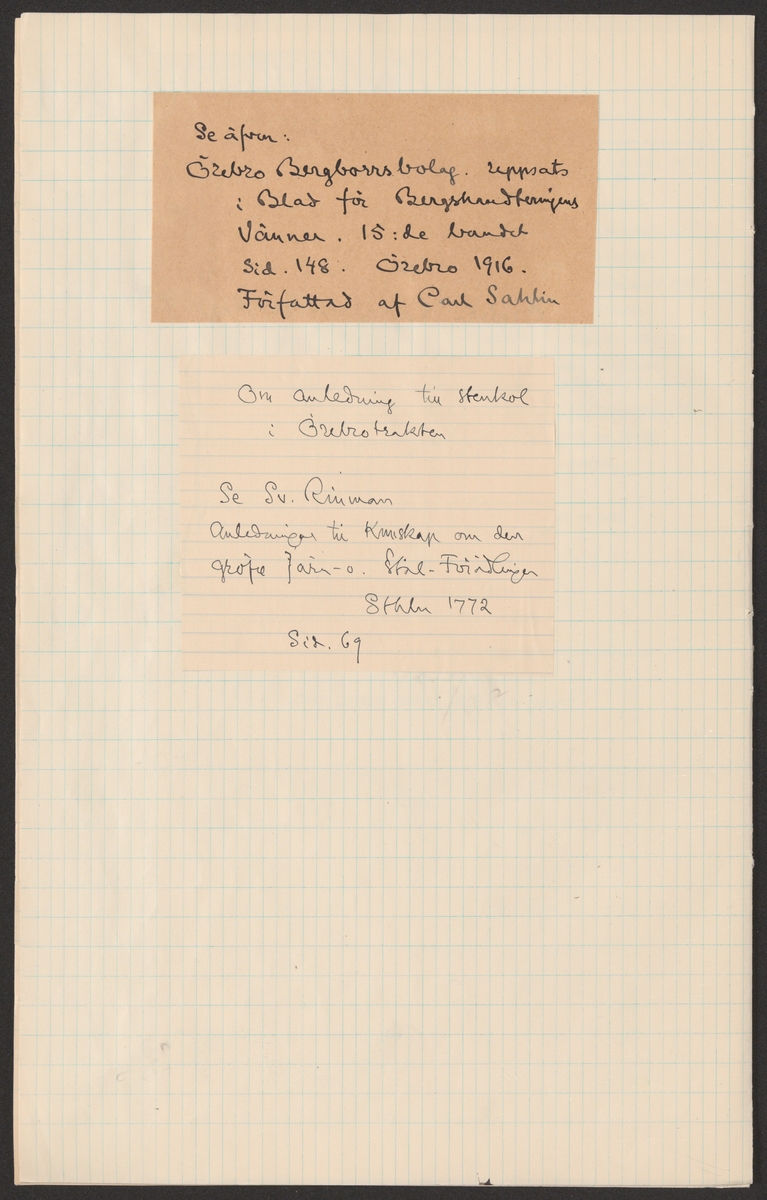 Se äfven:
Örebro Bergborrsbolag. uppsats
i Blad för Bergshandteringens
Vänner. 15:de bandet
Sid. 148. Örebro 1916.
Författad af Carl Sahlin
Om anledning till stenkol
i Örebrotrakten
Se Sv. Rinman
Anledningar till Kunskap om den
gröfre Järn- o. Stål-Förädlingen
Sthlm 1772
Sid. 69